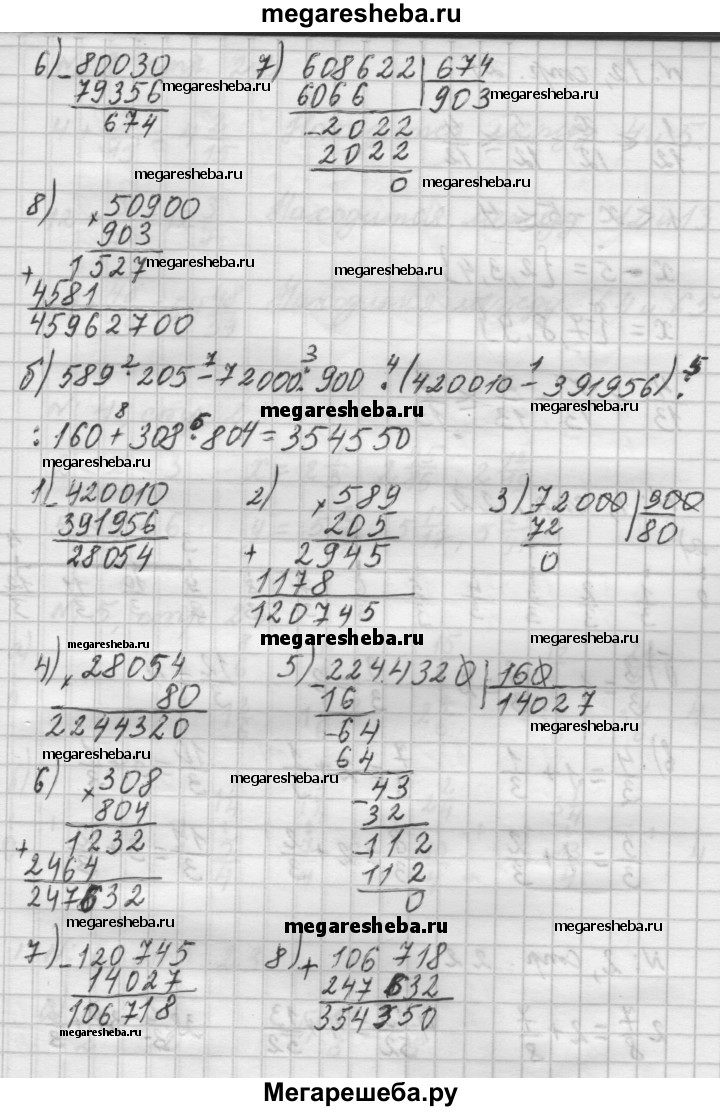 megaresheba.ru
6) - 80030
79356
674
7) 608622 | 674
6066 903
- 2022
2022
0
megaresheba.ru
megaresheba.ru
megaresheba.ru
8) × 50900
903
+ 1527
4581
45962700
megaresheba.ru
megaresheba.ru
2 7 3 4 1 5
б) 589 · 205 - 72000 : 900 · (420010 - 391956) :
megaresheba.ru
megaresheba.ru
8 6
: 160 + 308 · 804 = 354550
megaresheba.ru
1) - 420010
391956
28054
2) × 589
205
+ 2945
1178
120745
3) 72000 | 900
72 80
0
megaresheba.ru
megaresheba.ru
megaresheba.ru
4) × 28054
80
2244320
5) 2244320 | 160
- 16 14027
- 64
64
- 43
32
- 112
112
0
megaresheba.ru
megaresheba.ru
megaresheba.ru
6) × 308
804
+ 1232
2464
247632
megaresheba.ru
megaresheba.ru
megaresheba.ru
7) - 120745
14027
106718
8) + 106718
247632
354350
megaresheba.ru
megaresheba.ru
Мегарешеба.ру